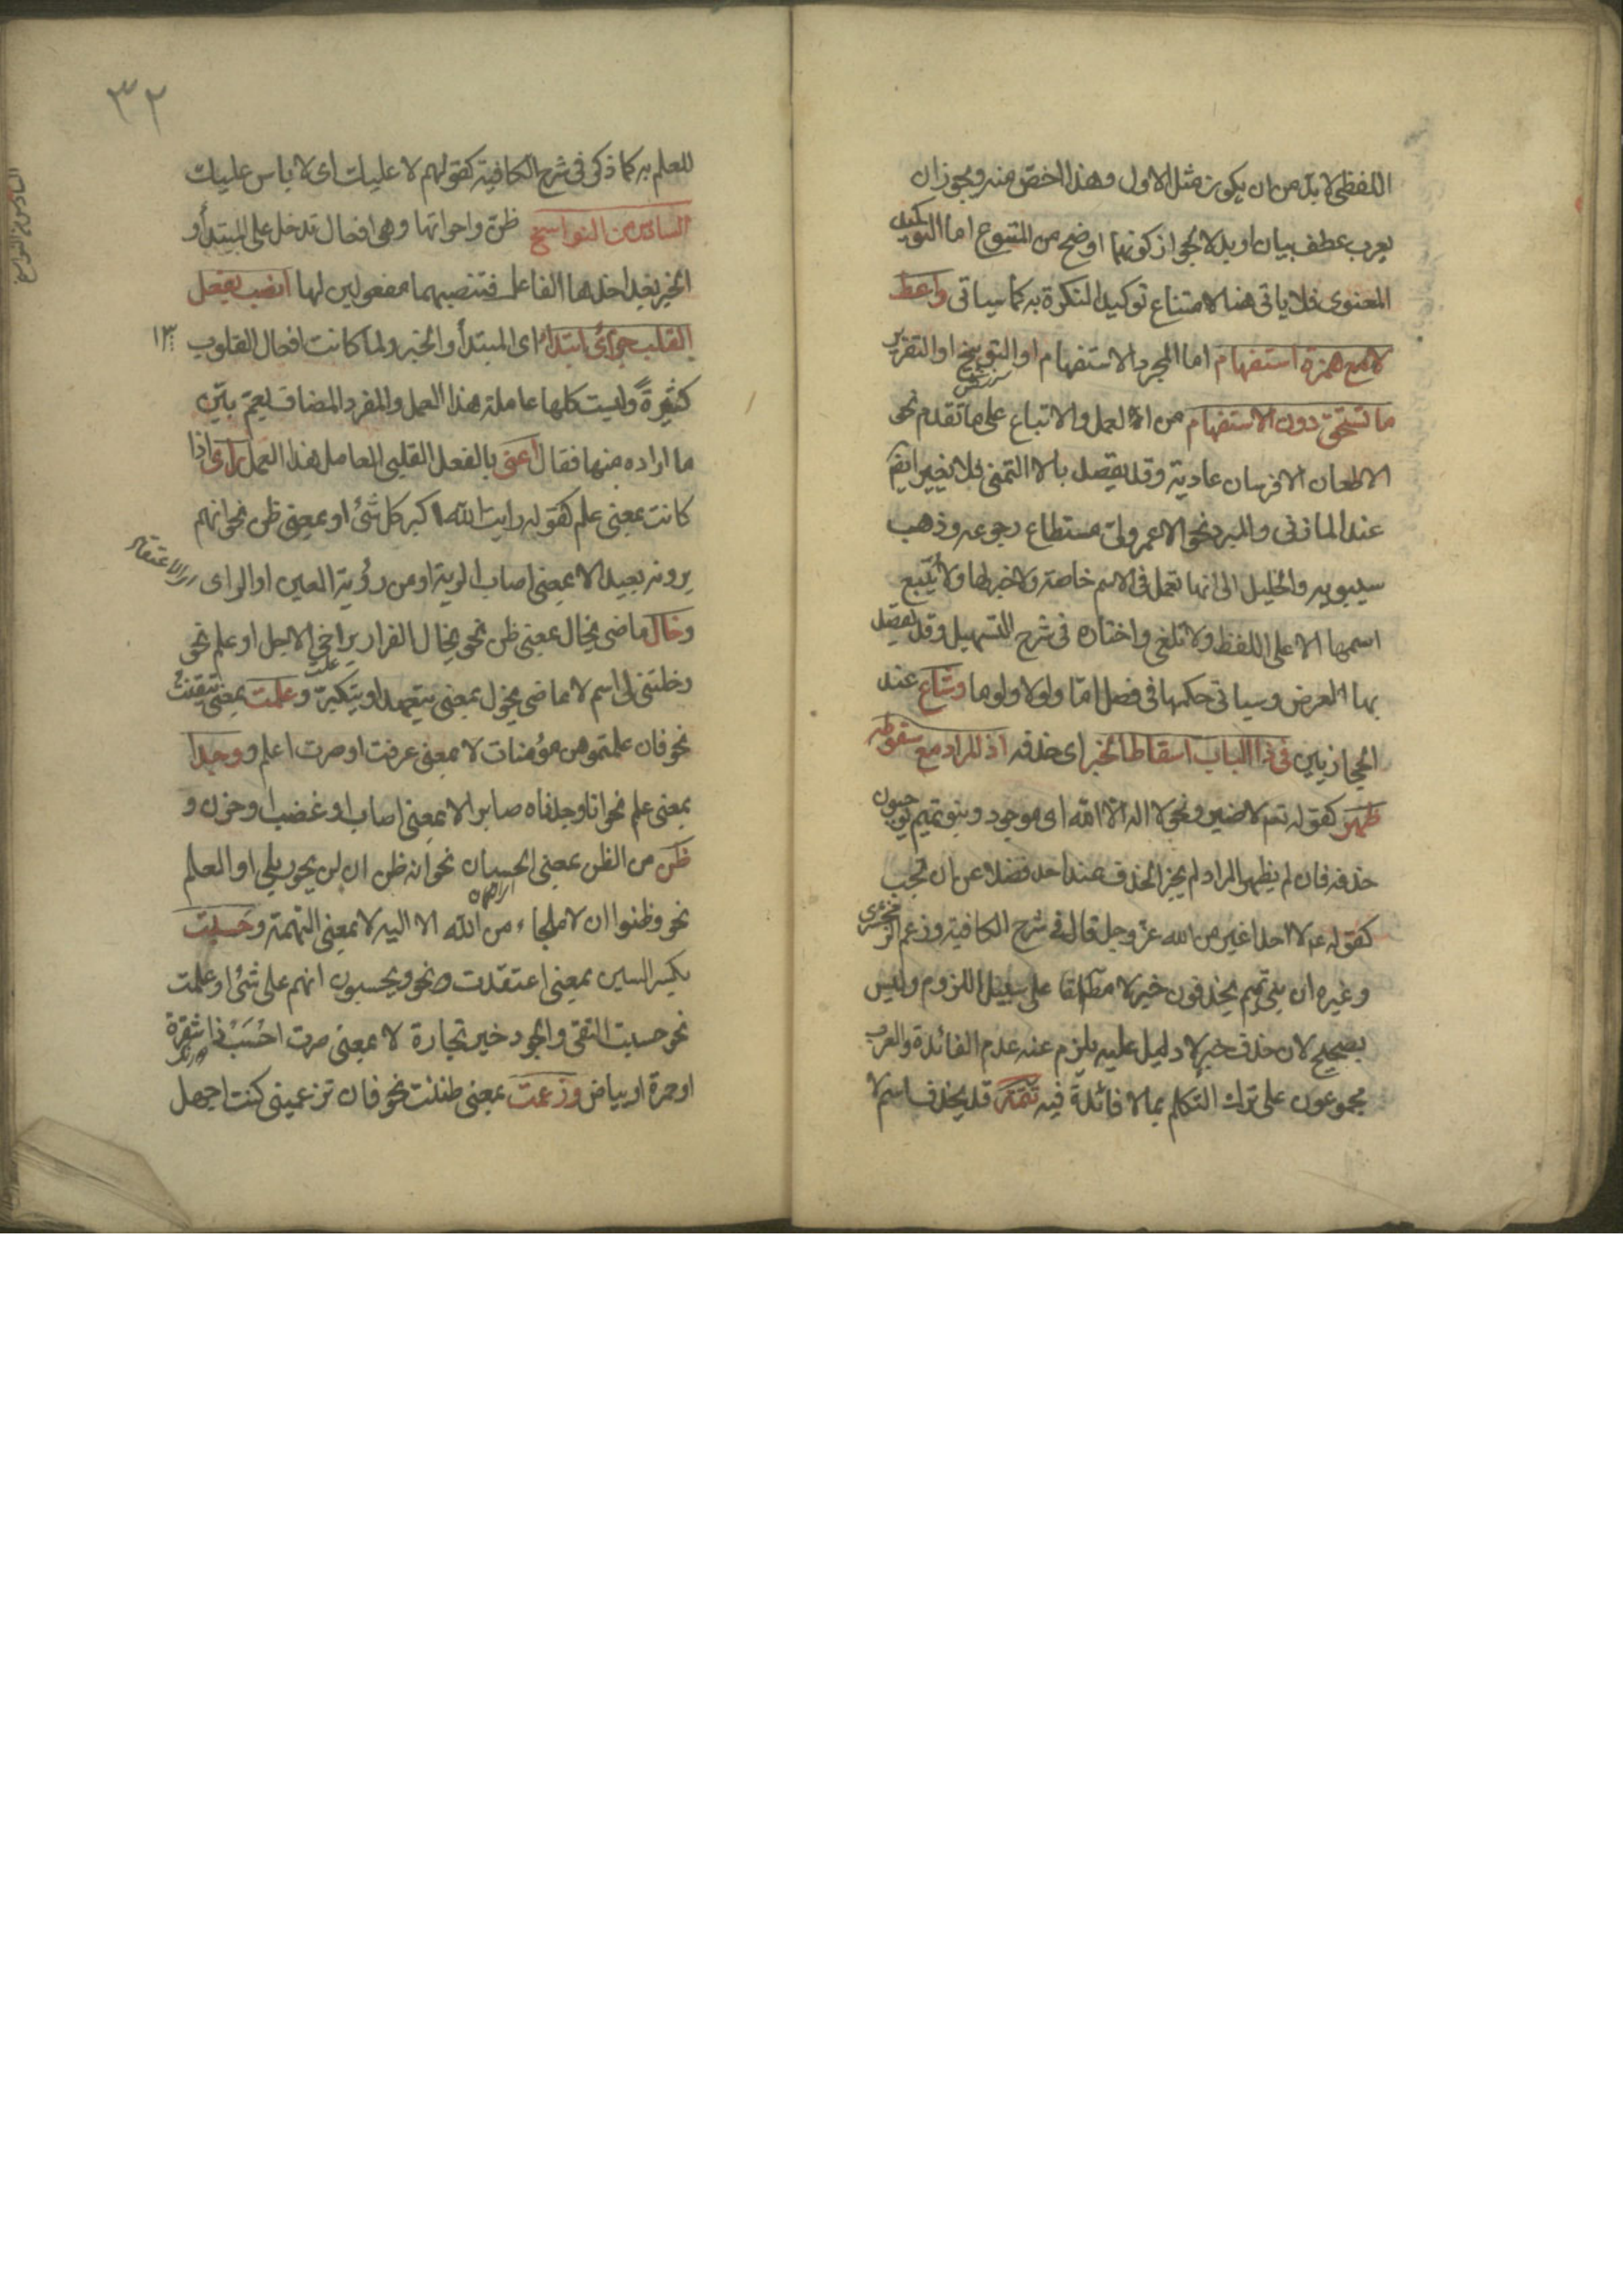 اللفظى لا بد من ان يكون مثل الاول وهذا اخص منه ويجوز ان
يعرب عطف بيان او بدلا لجواز كونهما اوضح من المتبوع اما التوكيد
المعنوى فلا ياتى هنا لامتناع توكيد النكرة به كما سياتى واعط
لا مع همزة استفهام اما المجرد الاستفهام او التوبيخ او التقرير
ما تستحق دون الاستفهام من العمل والاتباع على ما تقدم نحو
الا طعان الا فرسان عادية وقد يقصد بالا التمنى فلا تغير ايضا
عند المازنى والمبرد نحو الا عمر ولى مستطاع رجوعه وذهب
سيبويه والخليل الى انها تعمل فى الاسم خاصة ولا خبر لها ولا يتبع
اسمها الا على اللفظ ولا تلغى واختاره فى شرح التسهيل وقد يقصد
بها العرض وسياتى حكمها فى فصل اما ولولا ولوما وشاع عند
الحجازيين فى ذا الباب اسقاط الخبر اى حذفه اذ المراد مع سقوطه
ظهر كقوله تعم لا ضير ونحو لا اله الا الله اى موجود وبنو تميم يوجبون
حذفه فان لم يظهر المراد لم يجز الحذف عند احد فضلا عن ان يجب
كقوله عم لا احد اغير من الله عز وجل قال فى شرح الكافية وزعم الزمخشرى
وغيره ان بنى تميم يحذفون خبر لا مطلقا على سبيل اللزوم وليس
بصحيح لان حذف خبر لا دليل عليه يلزم عنه عدم الفائدة والعرب
مجموعون على ترك التكلم بما لا فائدة فيه تتمة قد يحذف اسم لا
٣٢
للعلم به كما ذكر فى شرح الكافية كقولهم لا عليك اى لا باس عليك
السادس من النواسخ
السادس من النواسخ ظن واخواتها وهى افعال تدخل على المبتدأ و
الخبر بعد اخذها الفاعل فتنصبهما مفعولين لها انصب بفعل
القلب جزأى ابتداء اى المبتدأ والخبر ولما كانت افعال القلوب
كثيرة وليست كلها عاملة هذا العمل والمفرد المضاف يعم بين
ما اراده منها فقال اعنى بالفعل القلبى العامل هذا العمل رأى اذا
كانت بمعنى علم كقوله رايت الله اكبر كل شئ او بمعنى ظن نحو انهم
يرونه بعيدا لا بمعنى اصاب الرية او من رؤية العين او الراى
وخال ماضى يخال بمعنى ظن نحو يخال الفرار يراخى الاجل او علم نحو
دخلتنى لى اسم لا ماضى يخول بمعنى يتعهد او يتكبر وعلمت بمعنى تيقنت
نحو فان علمتموهن مؤمنات لا بمعنى عرفت او صرت اعلم ووجدا
بمعنى علم نحو انا وجدناه صابرا لا بمعنى اصاب او غضب او حزن و
ظن من الظن بمعنى الحسبان نحو انه ظن ان لن يحور بلى او العلم
نحو وظنوا ان لا ملجاء من الله الا اليه لا بمعنى التهمة وحسبت
بكسر السين بمعنى اعتقدت نحو ويحسبون انهم على شئ او علمت
نحو حسبت التقى والجود خير تجارة لا بمعنى صرت احسب ذا شقرة
او حمرة او بياض وزعمت بمعنى ظننت نحو فان تزعمينى كنت اجهل